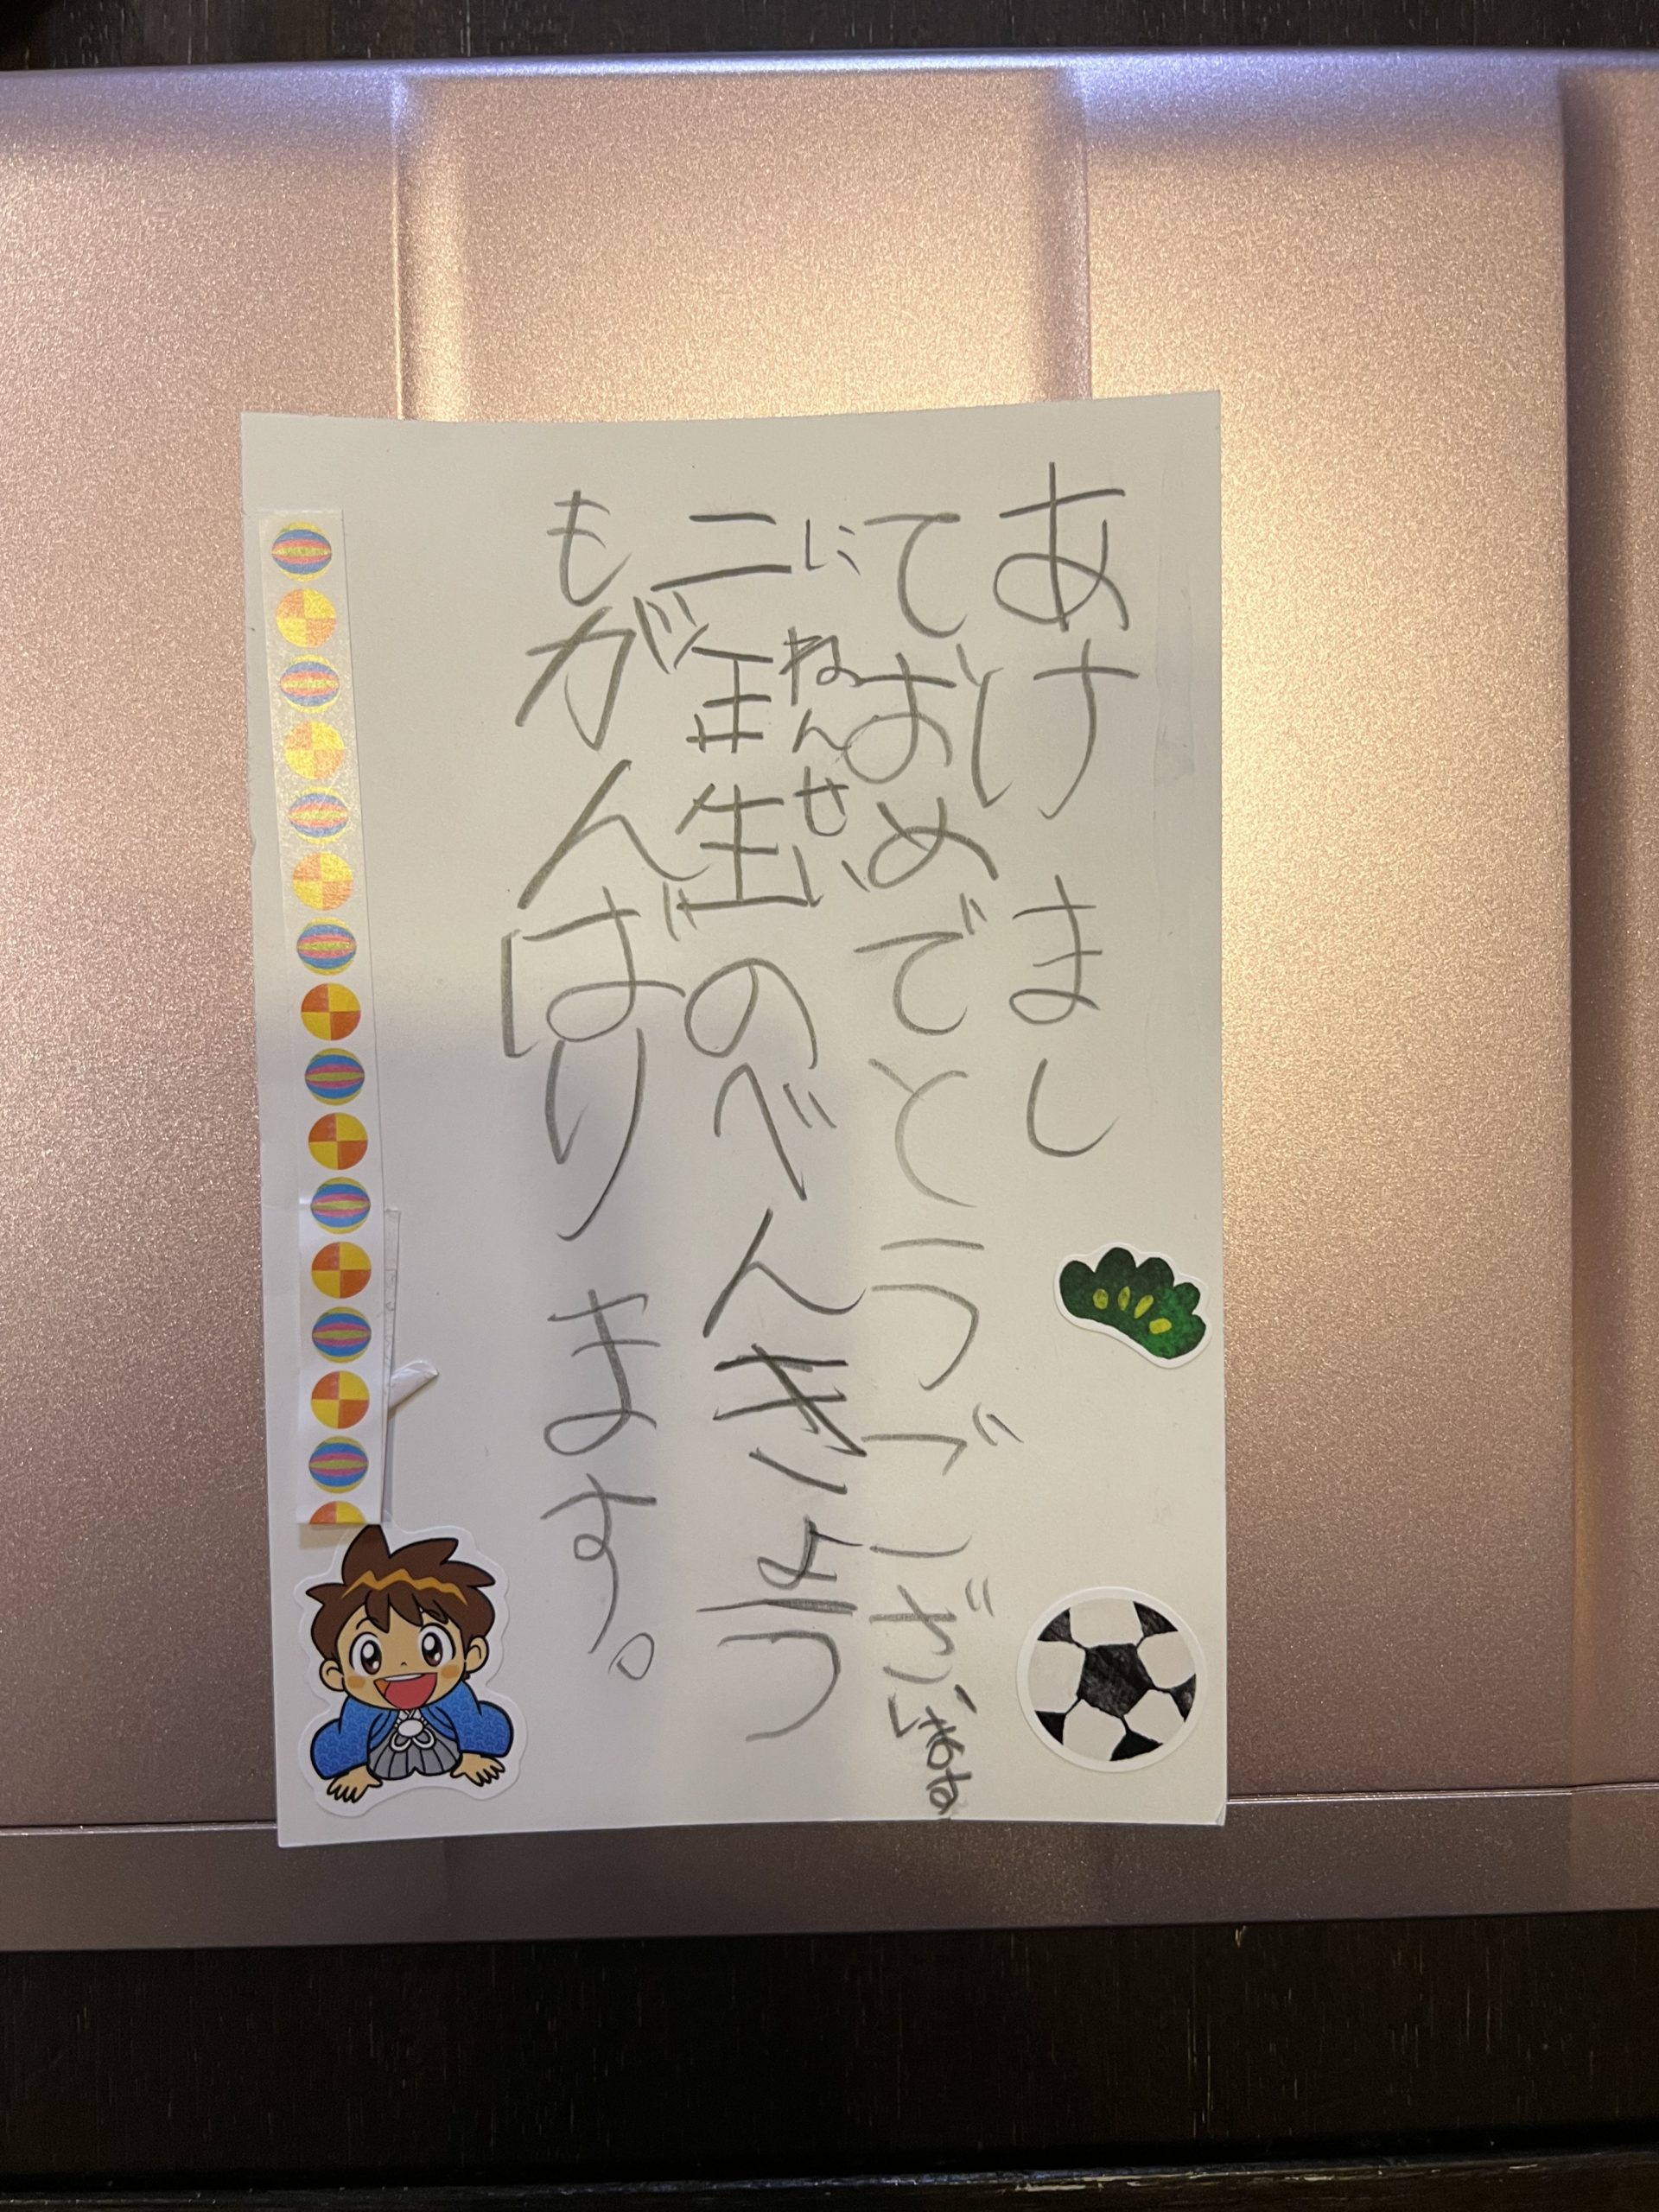 あけまし
ておめでとうございます
にねんせい
二年生のべんきょう
もがんばります。